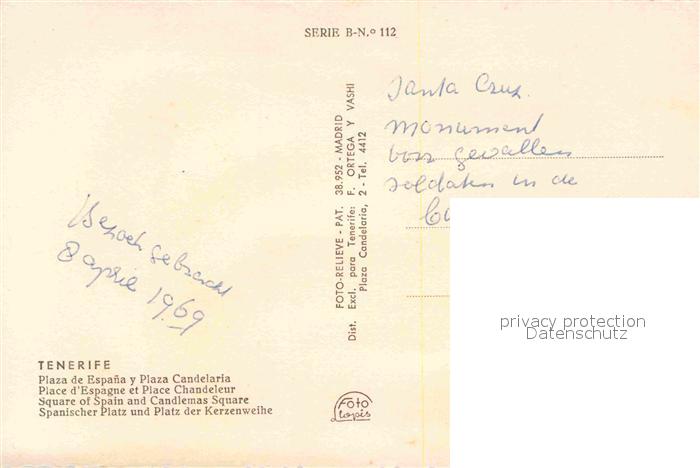 SERIE B-N.º 112
Santa Cruz.
Monument
voor gevallen
soldaten in de
Bezoek gebracht
8 april 1969
Dist. Excl. para Tenerife: F. ORTEGA Y VASHI
FOTO-RELIEVE - PAT. 38.952 - MADRID
Plaza Candelaria, 2 - Tel. 4412
TENERIFE
Plaza de España y Plaza Candelaria
Place d'Espagne et Place Chandeleur
Square of Spain and Candlemas Square
Spanischer Platz und Platz der Kerzenweihe
Foto
Llopis
privacy protection
Datenschutz